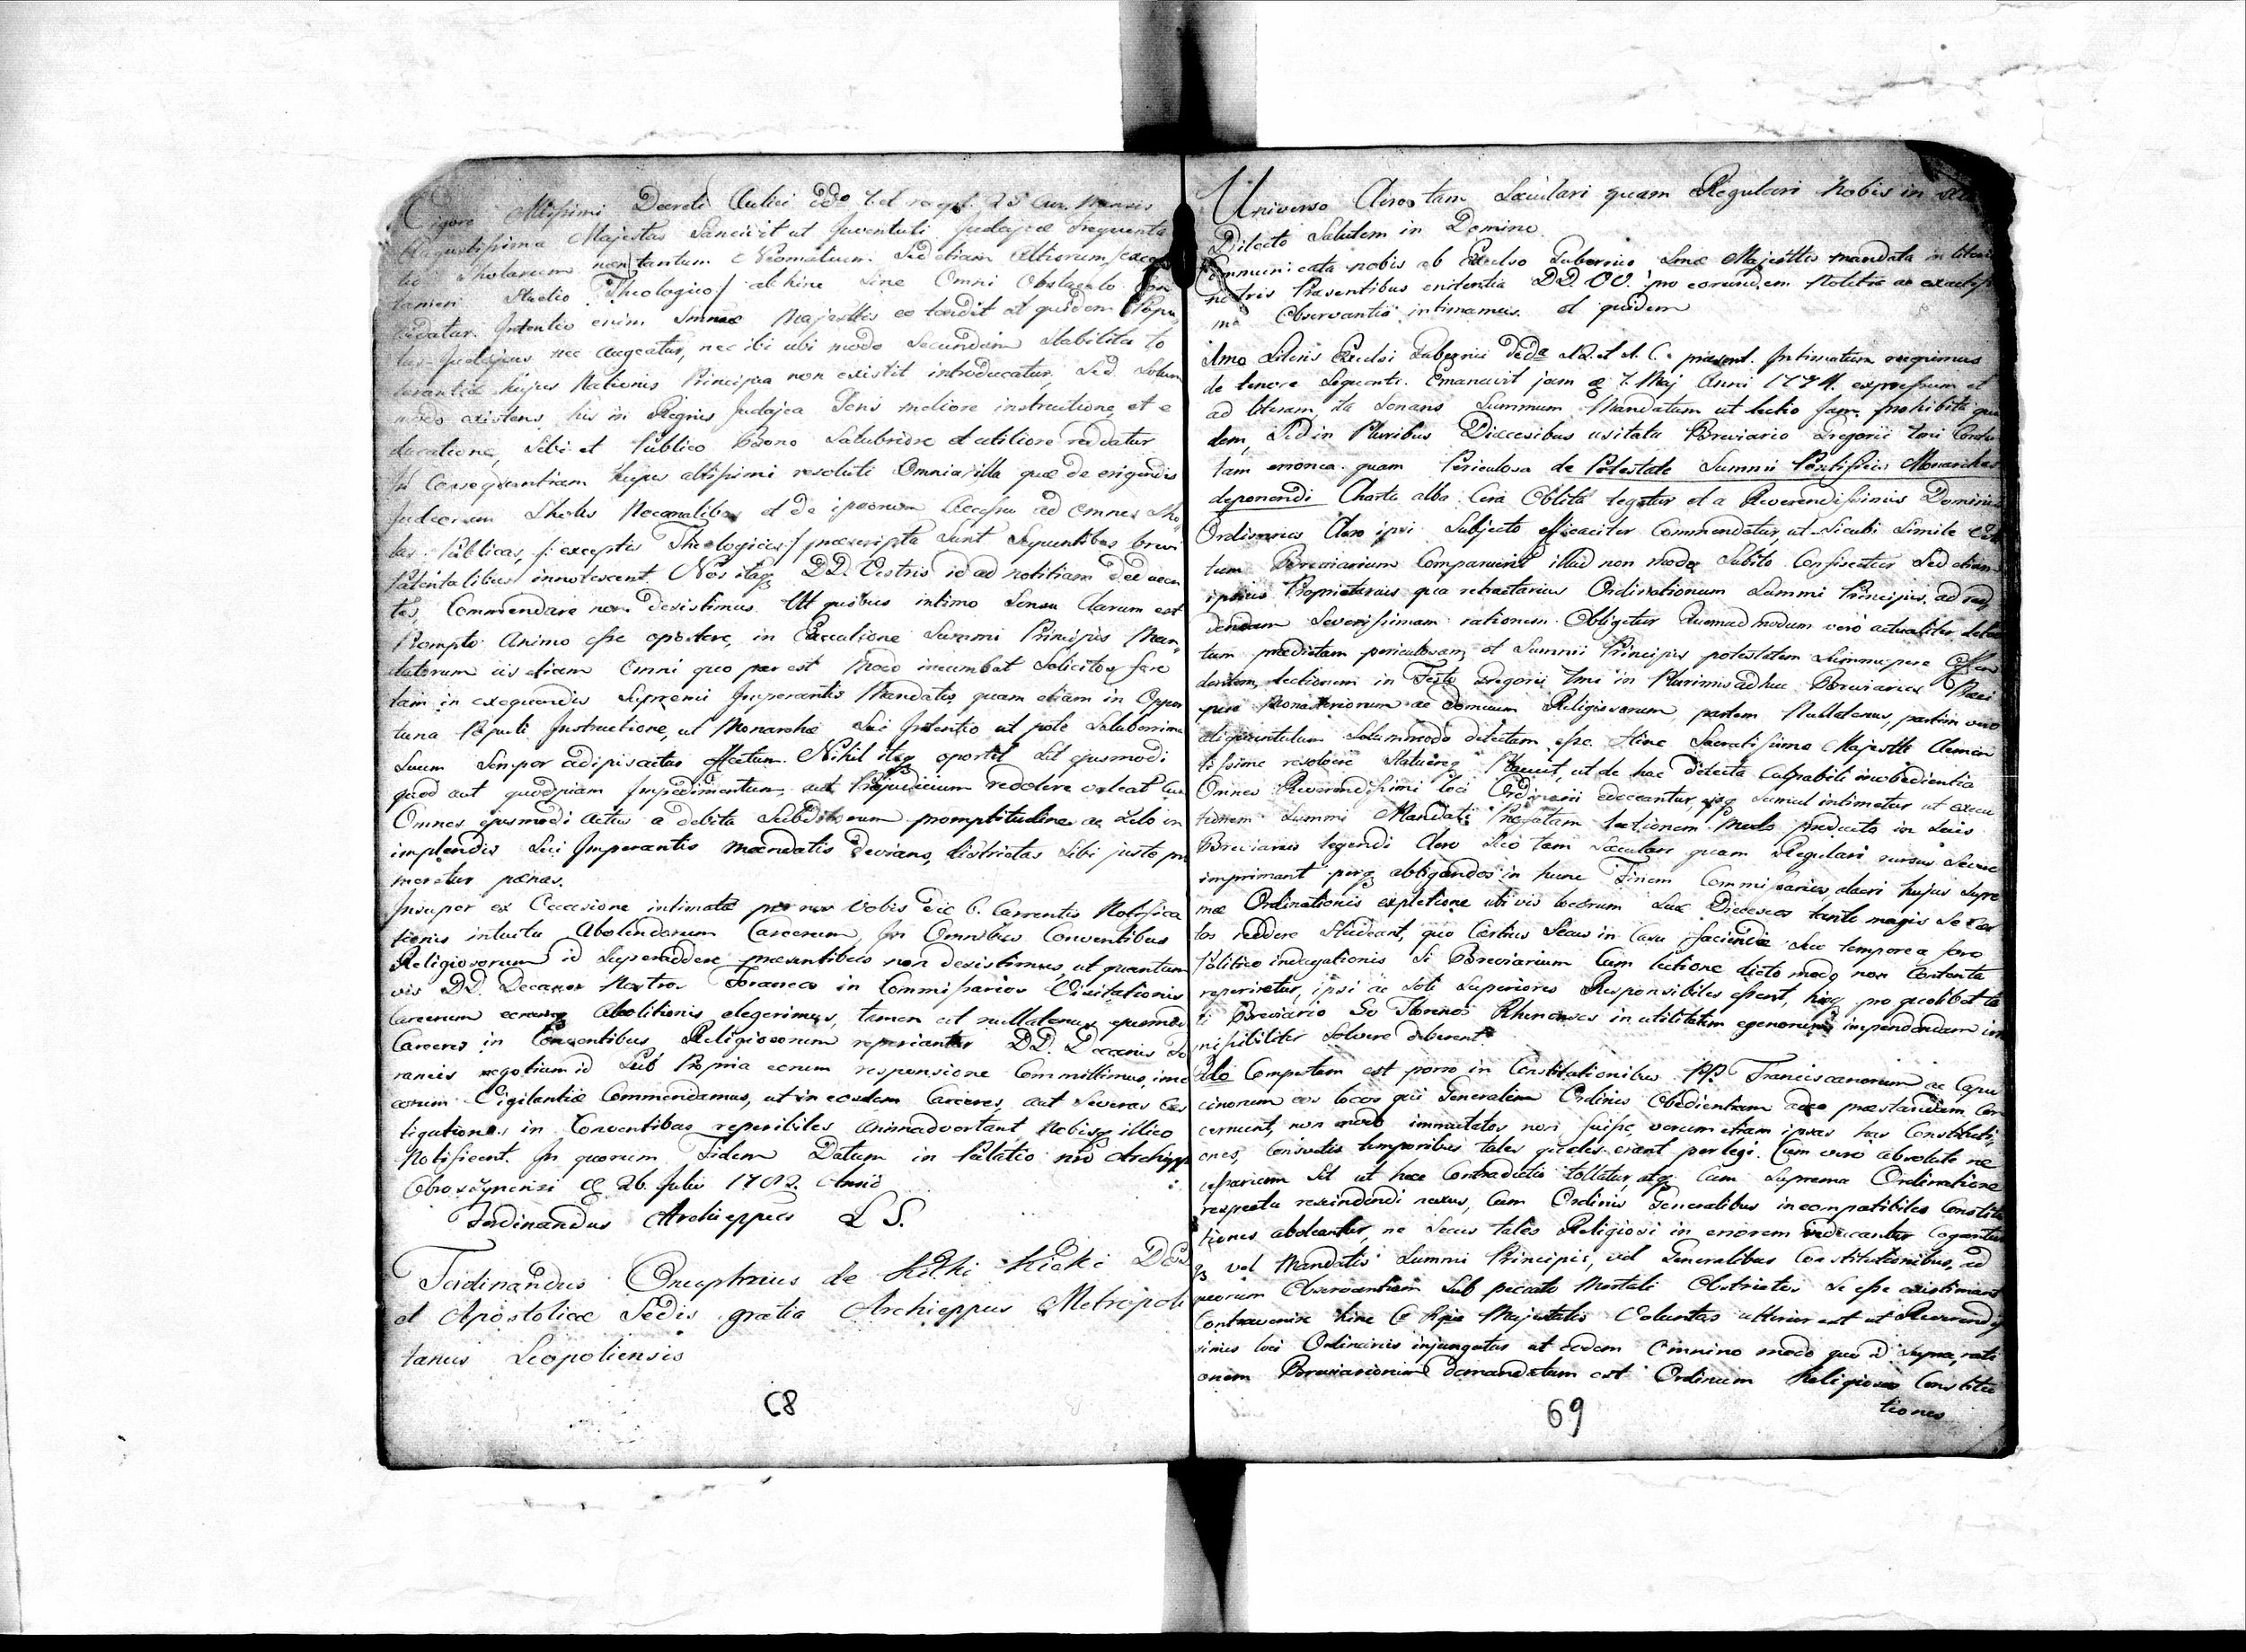 Vigore Altissimi Decreti Aulici ddo 7. et recept. 25 Cur. Mensis
Augustissima Majestas Sancivit ut Juventuti Judajcæ Frequenta
tio Scholarum non tantum Normalium Sed etiam Altiorum /: excep
tameri Studio Theologico :/ abhinc Sine Omni Obstaculo con
cedatur. Intentio enim Smmæ Majesttis eo tendit ut quidem Popu
lus Judajcus nec augeatur, nec ibi ubi modo Secundum Stabilita to
lerantiæ hujus Nationis Principia non existit introducatur, Sed Solum
modo existens his in Regnis Judajca Gens meliore instructione, et e
ducatione, Sibi et Publico Bono Salubrior et utilior reddatur
In Consequentiam hujus altissimi resoluti Omnia illa quæ de erigendis
Judæorum Scholis Normalibus et de ipsorum Accessu ad omnes Scho
las Publicas, /: exceptis Theologicis :/ præscripta Sunt Sequentibus brevi
Patentalibus innotescent. Nos itaq DD. Vestris id ad notitiam deducen
tes, Commendare non desistimus. Ut quibus intimo Sensu clarum est
Prompto Animo esse oportere, in Executione Summi Principis Man
datorum iis etiam Omni quo par est Modo incumbat Solicitos fore
tam in exequendis Supremi Imperantis Mandatis, quam etiam in Oppor
tuna Populi Instructione, ut Monarchæ Sui Intentio ut pote Saluberrima
Suum Semper adipiscatur effectum. Nihil itaq oportet Sit ejusmodi
quod aut quodpiam Impedimentum aut Præjudicium redolere valeat Cum
Omnes ejusmodi actus a debita Subditorum promptitudine ac Zelo in
implendis Sui Imperantis mandatis devians, districtas Sibi justo pro
meretur pænas.
Insuper ex Occasione intimatæ per nos Vobis die 6. Currentis Notifica
tionis intuitu Abolendorum Carcerum, In Omnibus Conventibus
Religiosorum id Superaddere præsentibus non desistimus, ut quantum
vis DD. Decanos Nostros Foraneos in Commissarios Visitationis
Carcerum eorumq Abolitionis elegerimus, tamen ut nullatenus ejusmodi
Carceres in Conventibus Religiosorum reperiantur DD. Decanis Fo
raneis negotium id Sub Propria eorum responsione Committimus, imo
eorum Vigilantiæ Commendamus, ut in eosdem Carceres, aut Severas Cas
tigationes in Conventibus reperibiles animadvertant Nobisq illico
Notificent. In quorum Fidem Datum in Palatio nro Archiepp
Obroszynensi d 26. Julii 1782. Anno
Ferdinandus Archieppus L S.
Ferdinandus Onuphrius de Kitki Kicki Dei
et Apostolicæ Sedis gratia Archieppus Metropoli
tanus Leopoliensis
68
Universo Clero tam Sæculari quam Regulari Nobis in
Dilecto Salutem in Domino.
Communicata nobis ab Excelso Gubernio Smæ Majesttis mandata in literis
nostris Præsentibus enitentia DD. VV. pro eorundem Notitia ac exactissi
ma Observantia intimamus. et quidem
1mo Literis Excelsi Gubernii Ddo 12. et 1. C. præsent. Intimatum suspimus
de tenore Sequenti. Emanavit jam d 7. Maj Anni 1774. expressum et
ad literam ita Sonans Summum Mandatum ut lectio Jam prohibita qui
dem, Sed in Pluribus Diæcesibus usitata Breviario Gregorii 7mi
tam erronea quam Periculosa de Potestate Summi Pontificis Monarchas
deponendi Charta alba Cera Oblita tegatur et a Reverendissimis Dominis
Ordinariis Clero ipsi Subjecto efficaciter Commendatur, ut Sicubi Simile
tum Breviarium Comparuerit illud non modo Subito Confiscetur Sed etiam
ipsius Proprietarius qua refractarius Ordinationum Summi Principis, ad red
dendam Severissimam rationem Obligetur Quemadmodum vero actualiter
tum prædictam periculosam, et Summi Principis potestatem Summopere offen
dentem, lectionem in Festo Gregorii 7mi in Plurimis adhuc Breviariis Præci
pue Monasteriorum ac Domuum Religiosarum, partim Nullatenus, partim vero
aliquantulum Solummodo delectam esse. Hinc Sacratissimo Majestti Clemen
tissime resolvere Statuereq Placuit, ut de hac detecta Culpabili inobedientia
Omnes Reverendissimi loci Ordinarii edoceantur, eisq Simul intimetur ut execu
tionem Summi Mandati Præfatam lectionem Modo prædicto in Suis
Breviariis tegendi Clero Suo tam Sæculari quam Regulari rursus Severe
imprimant perq abligandos in hunc Finem Commissarios dari hujus Supre
mæ Ordinationis expletione ubivis locorum Suæ Diæceseos tanto magis Se Cer
tos reddere Studeant, quo Certius Secus in Casu faciendæ Suo tempore a foro
Politico indagationis Si Breviarium Cum lectione dicto modo non Contenta
reperiretur, ipsi ac Soli Superiores Responsibiles essent, hinq pro quolibet ta
li Breviario 50 Florenos Rhenenses in utilitatem egenorum impendendam irre
missibiliter Solvere deberent.
2do Compertum est porro in Constitutionibus PP. Franciscanorum ac Capu
cinorum eos locos qui Generalem Ordinis Obedientiam adeo præstandam Con
cernunt, non modo immutatos non fuisse, verum etiam ipsas has Constituti
ones, Consuetis temporibus tales quales erant perlegi. Cum vero absolute ne
cessarium Sit ut hæc Contradictio tollatur atq Cum Suprema Ordinatione
respectu rescindendi nexus, Cum Ordinis Generalibus incompatibiles Constitu
tiones aboleantur, ne Secus tales Religiosi in errorem inducantur Cogantur
q vel Mandatis Summi Principis, vel Generalibus Constitutionibus, ad
quorum Observantiam Sub peccato Mortali Obstrictos Se esse existimant
Contravenire hinc Majestatis Voluntas ulterior est ut Reverendis
simis loci Ordinariis injungatur ut eodem Omnino modo quo id Supra, rati
onem Breviariorum demandatum est Ordinum Religioso Constitu
tiones
69